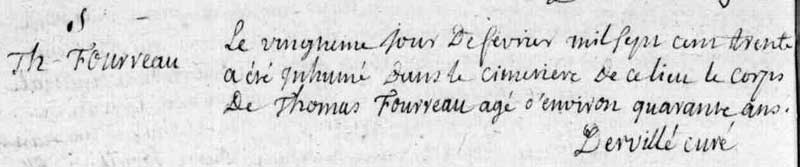 S
Th- Fourreau
Le vingtieme jour De fevrier mil sept cent trente
a été Inhumé dans le cimetiere de ce lieu le corps
De Thomas Fourreau agé d'environ quarante ans.
Dervillé curé